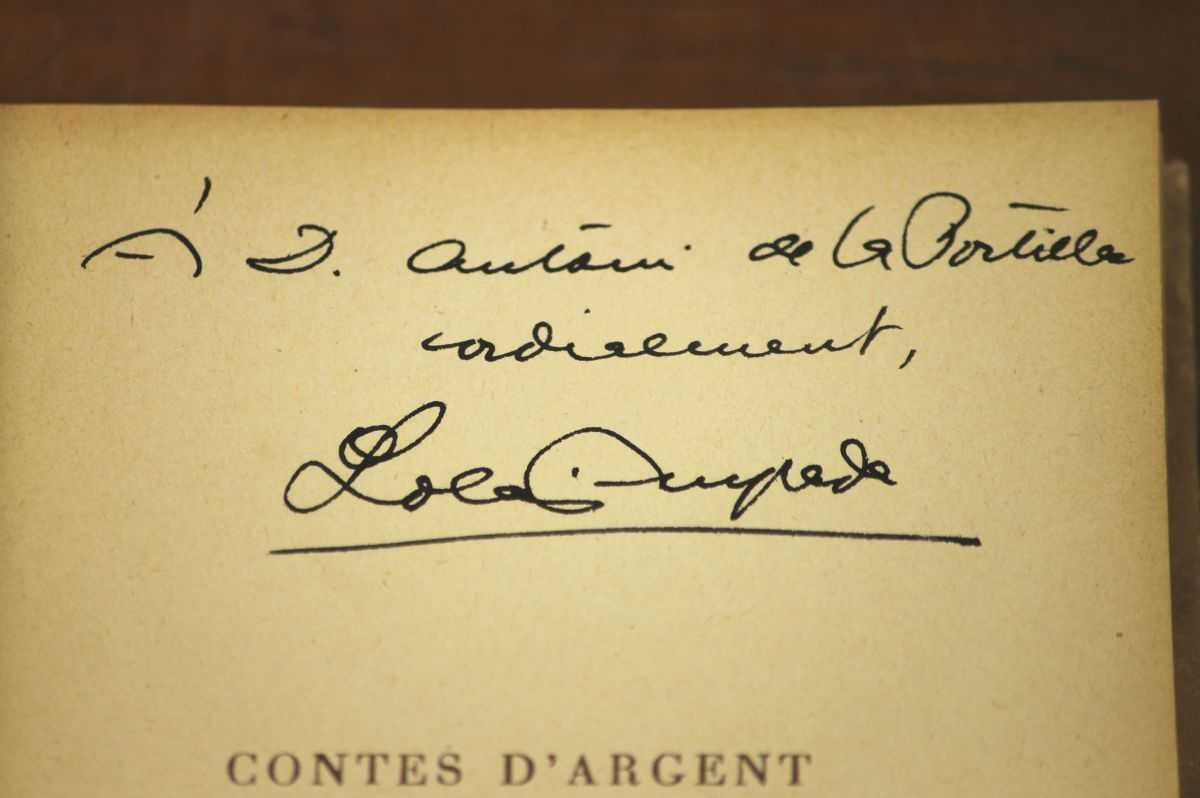 À D. Antoni de la Portilla
cordialment,
Lola Anglada
CONTES D'ARGENT